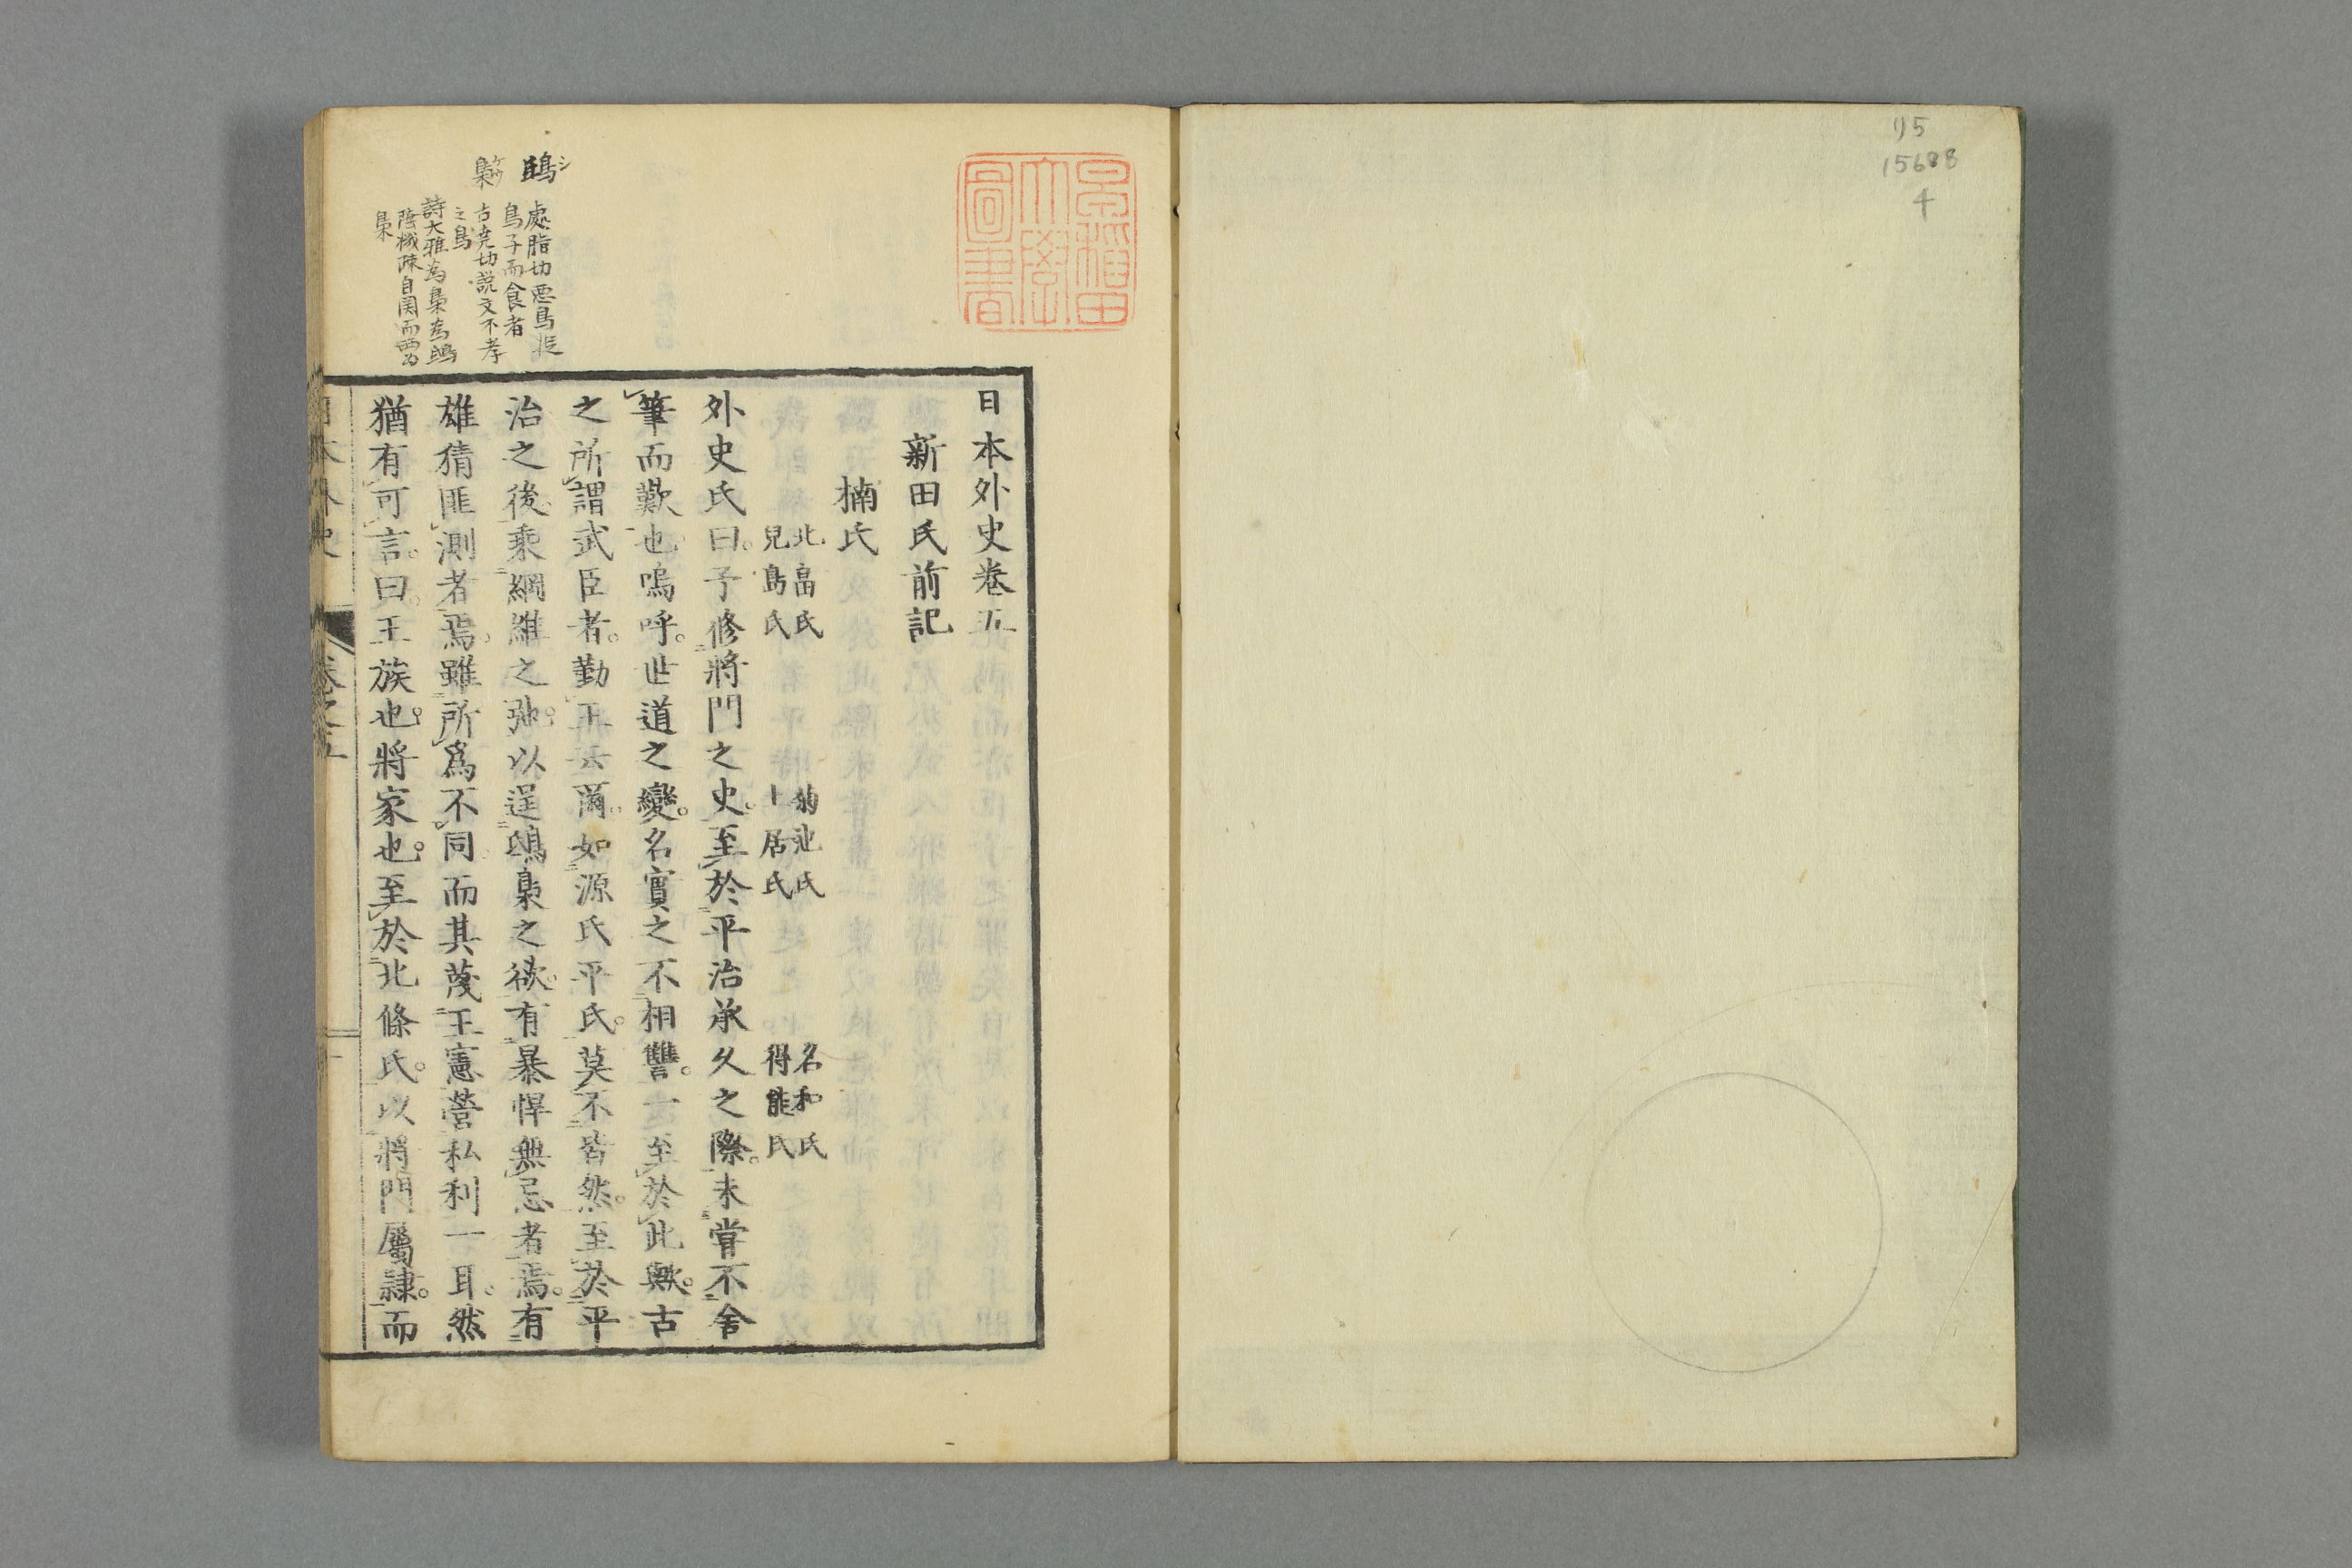 リ5
15688
4
早稲田
大學
圖書
日本外史卷五
新田氏前記
楠氏
北畠氏
兒島氏
菊池氏
土居氏
名和氏
得能氏
外史氏曰。予修將門之史。至於平治承久之際。未嘗不舍
筆而歎也。嗚呼。世道之變。名實之不相讐。一至於此歟。古
之所謂武臣者。勤王云爾。如源氏平氏。莫不皆然。至於平
治之後。乘綱維之弛。以逞鴟梟之欲。有暴悍無忌者焉。有
雄猜匪測者焉。雖所爲不同。而其蔑王憲營私利一耳。然
猶有可言。曰王族也。將家也。至於北條氏。以將門屬隷。而
鴟シ
處脂切惡鳥捉
鳥子而食者
梟ケウ
古堯切説文不孝
之鳥
詩大雅為梟為鴟
陸機疎自関而西為
梟
日本外史
卷之五
一